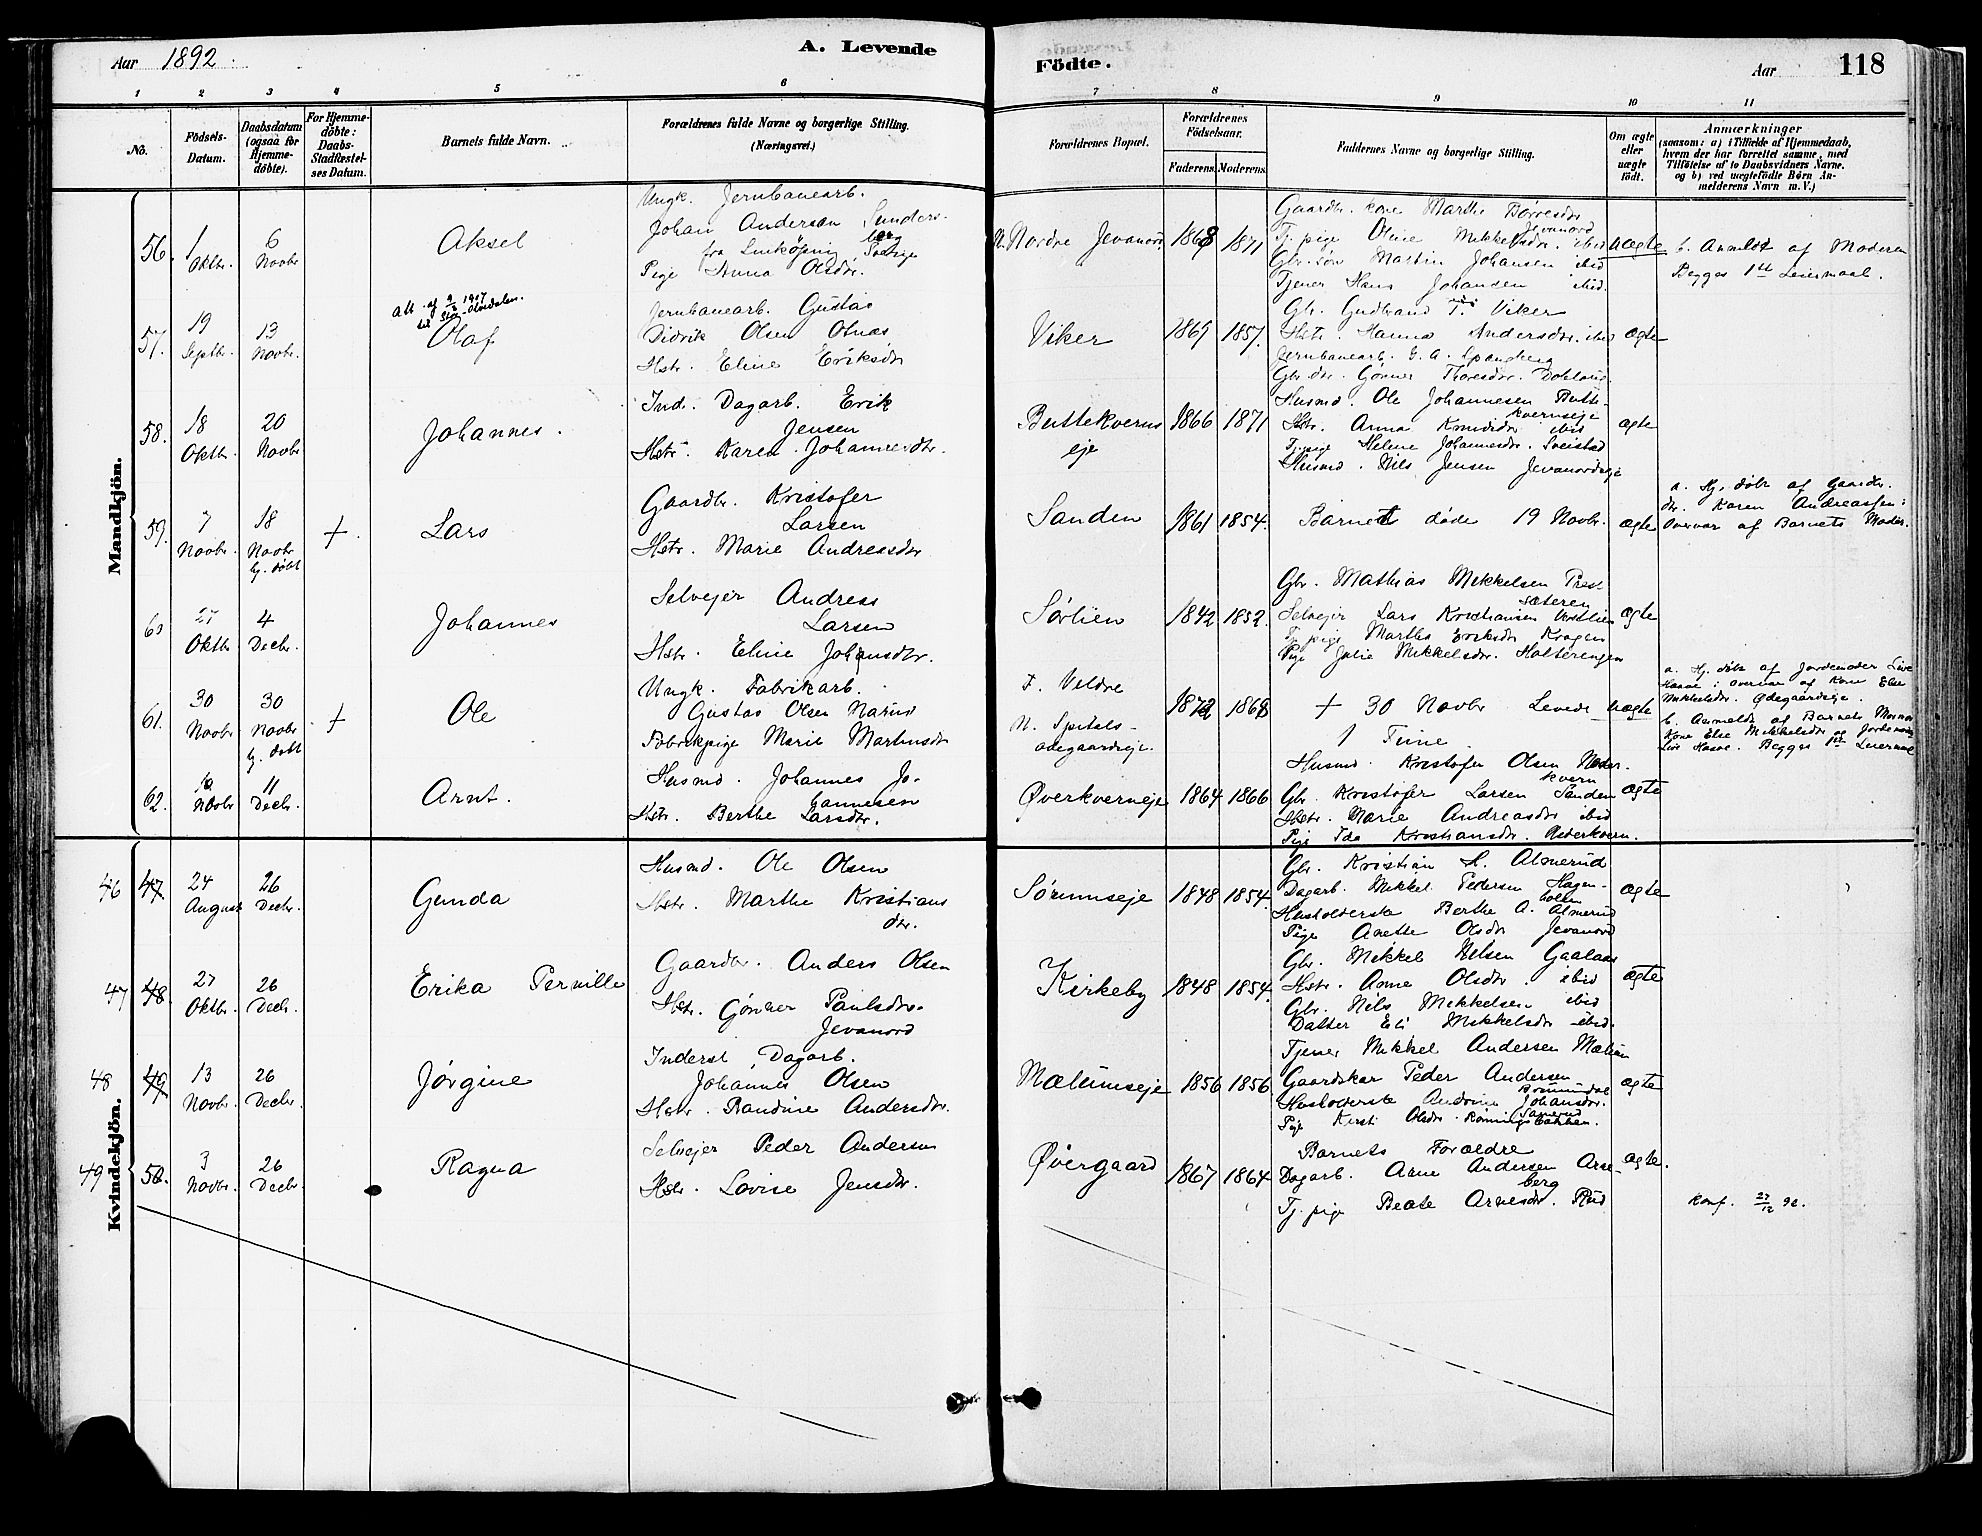 Aar 1892.
A. Levende
Födte.
Aar
118
1 2 3 4 5 6
7 8 9 10 11
No.
Födsels-
Datum.
Daabsdatum
(ogsaa for
Hjemme-
döbte).
For Hjemme-
döbte:
Daabs-
Stadfæstel-
ses Datum.
Barnets fulde Navn.
Forældrenes fulde Navne og borgerlige Stilling.
(Næringsvei.)
Forældrenes Bopæl.
Forældrenes
Födselsaar.
Faderens. Moderens.
Faddernes Navne og borgerlige Stilling.
Om ægte
eller
uægte
födt.
Anmærkninger
(saasom: a) i Tilfælde af Hjemmedaab,
hvem der har forrettet samme, med
Tilföielse af to Daabsvidners Navne,
og b) ved uægtefödte Börn An-
melderens Navn m. V.)
Mandkjön.
56.
1
Oktbr.
6
Novbr.
Aksel
Ungk. Jernbanearb.
Johan Anderson Sunders-
fra Linköping Sverige
Pige Anna Olsdr.
N. Nordre Jevanord
1868 1871
Gaardbr. kone Marthe Børresdr
Jevanord
Tj. pige Oline Mikkelsdr. ibid
Gbr. søn Martin Johansen ibid
Tjener Hans Johansen ibid.
uægte
b. Anmeldt af Moderen
Begges 1ste Leiermaal.
57.
19
Septbr.
13
Novbr.
Olaf
Jernbanearb. Gustav
Didrik Olsen Olnæs
Hstr. Eline Eriksdr
Viker
1865 1857.
Gbr. Gudbrand T. Viker
Hstr. Hanna Andersdr. ibid
Jernbanearb. G. A. Spangberg
Gbr. dtr. Gønner Thoresdr.
ægte
58.
18
Oktbr.
20
Novbr.
Johannes.
Ind. Dagarb. Erik
Jensen
Hstr. Karen Johannesdtr.
Buttekverns
eje
1866 1871
Husmd. Ole Johannesen Butte-
kvernseje
Hstr. Anna Knudsdr ibid
Tj.pige Helene Johannesdr. Sveistad
Husmd. Nils Jensen Jevanordseje
ægte
59.
7
Novbr.
18
Novbr
hj. døbt
+
Lars
Gaardbr. Kristofer
Larsen
Hstr. Marie Andreasdr
Sanden
1861 1854.
Barnet døde 19 Novbr.
ægte
a. Hj. døbt af Gaardbr.
dtr. Karen Andreassen i
Overvær af Barnets Moder.
60
27
Oktbr
4
Decbr.
Johannes
Selvejer Andreas
Larsen
Hstr. Eline Johansdtr.
Sørlien
1842 1852.
Gbr. Mathias Mikkelsen Prest-
sæteren
Selvejer Lars Kristiansen Vestlien
Tj. pige Marthe Eriksdr Kragen
Pige Julie Mikkelsdr. Holterengen
ægte
61.
30
Novbr
30
Novbr
hj. døbt
+
Ole
Ungk. Fabrikarb.
Gustav Olsen Narud
Fabrikpige Marie Martinsdr
F. Veldre
N. Spitals-
ødegaardseje.
1872 1868
+ 30 Novbr Levede
1 Time.
uægte
a. Hj. døbt af Jordemoder Live
Hasve i Overvær af Kone Else
Mikkelsdr. Ødegaardseje.
b. Anmeldt af Barnets Mormor
Kone Else Mikkelsdr og Jordemoder
Live Hasve. Begges 1ste Leiermaal
62.
Novbr
11
Decbr.
Arnt.
Husmd. Johannes Jo-
hannesen
Hstr. Berthe Larsdtr.
Øverkverneje
1864 1866
Husmd. Kristofer Olsen Neder-
kvern
Gbr. Kristofer Larsen Sanden
Hstr. Marie Andreasdr ibid
Pige Ida Kristiansdr. Nederkvern.
ægte
Kvindekjön.
46 47
24
August
26
Decbr.
Gunda
Husmd. Ole Olsen
Hstr. Marthe Kristians
dtr.
Sørumseje
1848 1854.
Gbr. Kristian H. Almerud
Dagarb. Mikkel Pedersen Hagen-
kollen
Husholderske Berthe A. Almerud
Pige Anette Olsdr Jevanord
ægte
47 48.
27
Oktbr.
26
Decbr.
Erika Pernille
Gaardbr. Anders Olsen
Hstr. Gønner Paulsdtr.
Jevanord
Kirkeby
1848 1854.
Gbr. Mikkel Nilsen Gaalaas
Hstr. Anne Olsdr. ibid
Gbr. Nils Mikkelsen ibid
Datter Eli Mikkelsdr ibid.
ægte
48 49
13
Novbr.
26
Decbr.
Jørgine
Inderst Dagarb.
Johannes Olsen
Hstr. Randine Andersdr.
Mælumseje
1856 1856.
Tjener Mikkel Andersen Mælum
Gaardskar Peder Andersen
Brumundal
Husholderske Andrine Johansdr.
Sanerud
Pige Kersti Olsdr. Rønningsbakken.
ægte
49 50.
3
Novbr.
26
Decbr.
Ragna
Selvejer Peder Andersen
Hstr. Lovise Jensdr.
Øvergaard
1867 1864
Barnets Forældre
Dagarb. Arne Andersen Arne-
berg
Tj. pige Beate Arnesdr. Rud
ægte.
Konf. 27/12 92.